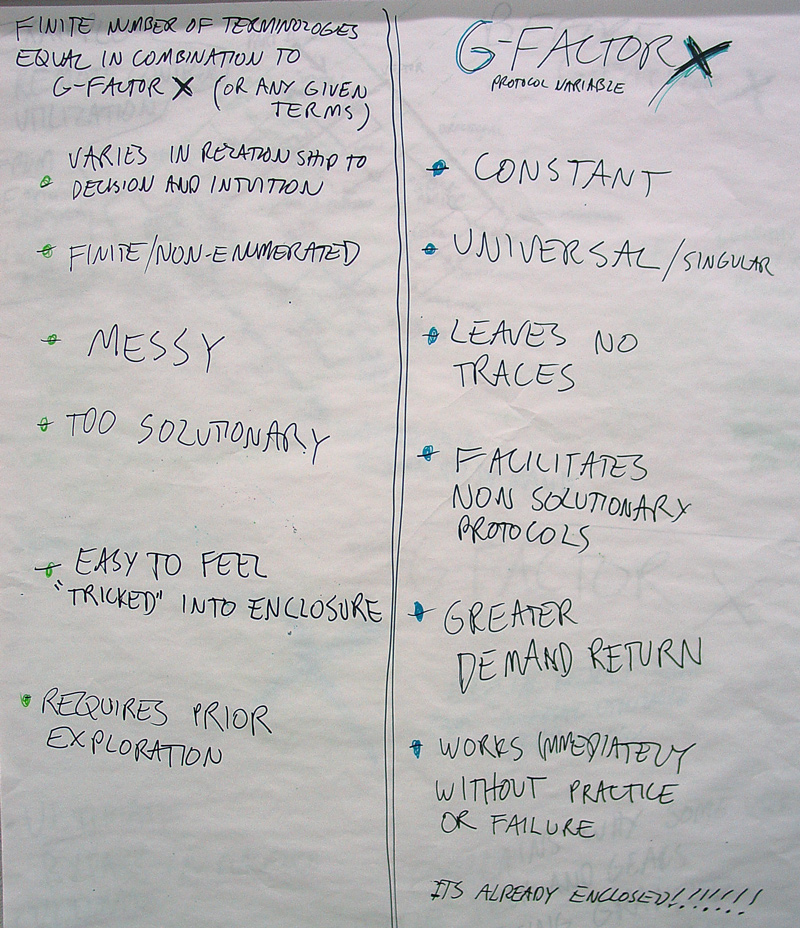 FINITE NUMBER OF TERMINOLOGIES
EQUAL IN COMBINATION TO
G-FACTOR X (OR ANY GIVEN
TERMS)
VARIES IN RELATIONSHIP TO
DECISION AND INTUITION
FINITE/NON-ENUMERATED
MESSY
TOO SOLUTIONARY
EASY TO FEEL
"TRICKED" INTO ENCLOSURE
REQUIRES PRIOR
EXPLORATION
G-FACTOR X
PROTOCOL VARIABLE
CONSTANT
UNIVERSAL/SINGULAR
LEAVES NO
TRACES
FACILITATES
NON SOLUTIONARY
PROTOCOLS
GREATER
DEMAND RETURN
WORKS IMMEDIATELY
WITHOUT PRACTICE
OR FAILURE
ITS ALREADY ENCLOSED!!!!!!!